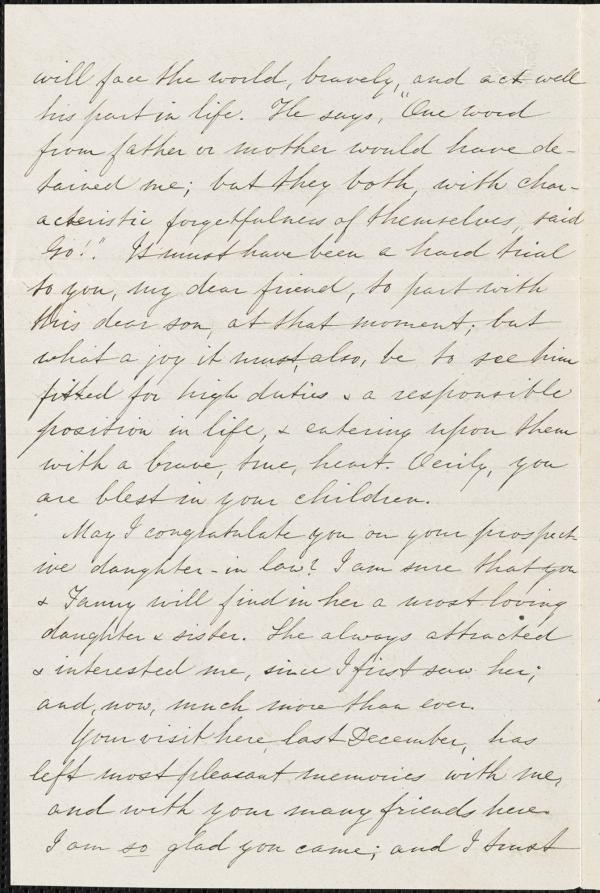 will face the world, bravely, and act well
his part in life. He says, "One word
from father or mother would have de-
tained me; but they both, with char-
acteristic forgetfulness of themselves, said
Go!". It must have been a hard trial
to you, my dear friend, to part with
this dear son, at that moment; but
what a joy it must, also, be to see him
fitted for high duties & a responsible
position in life, & entering upon them
with a brave, true, heart. Verily, you
are blest in your children.
May I congratulate you on your prospect-
ive daughter-in law? I am sure that you
& Fanny will find in her a most loving
daughter & sister. She always attracted
& interested me, since I first saw her;
and, now, much more than ever.
Your visit here, last December, has
left most pleasant memories with me,
and with your many friends here.
I am so glad you came; and I trust